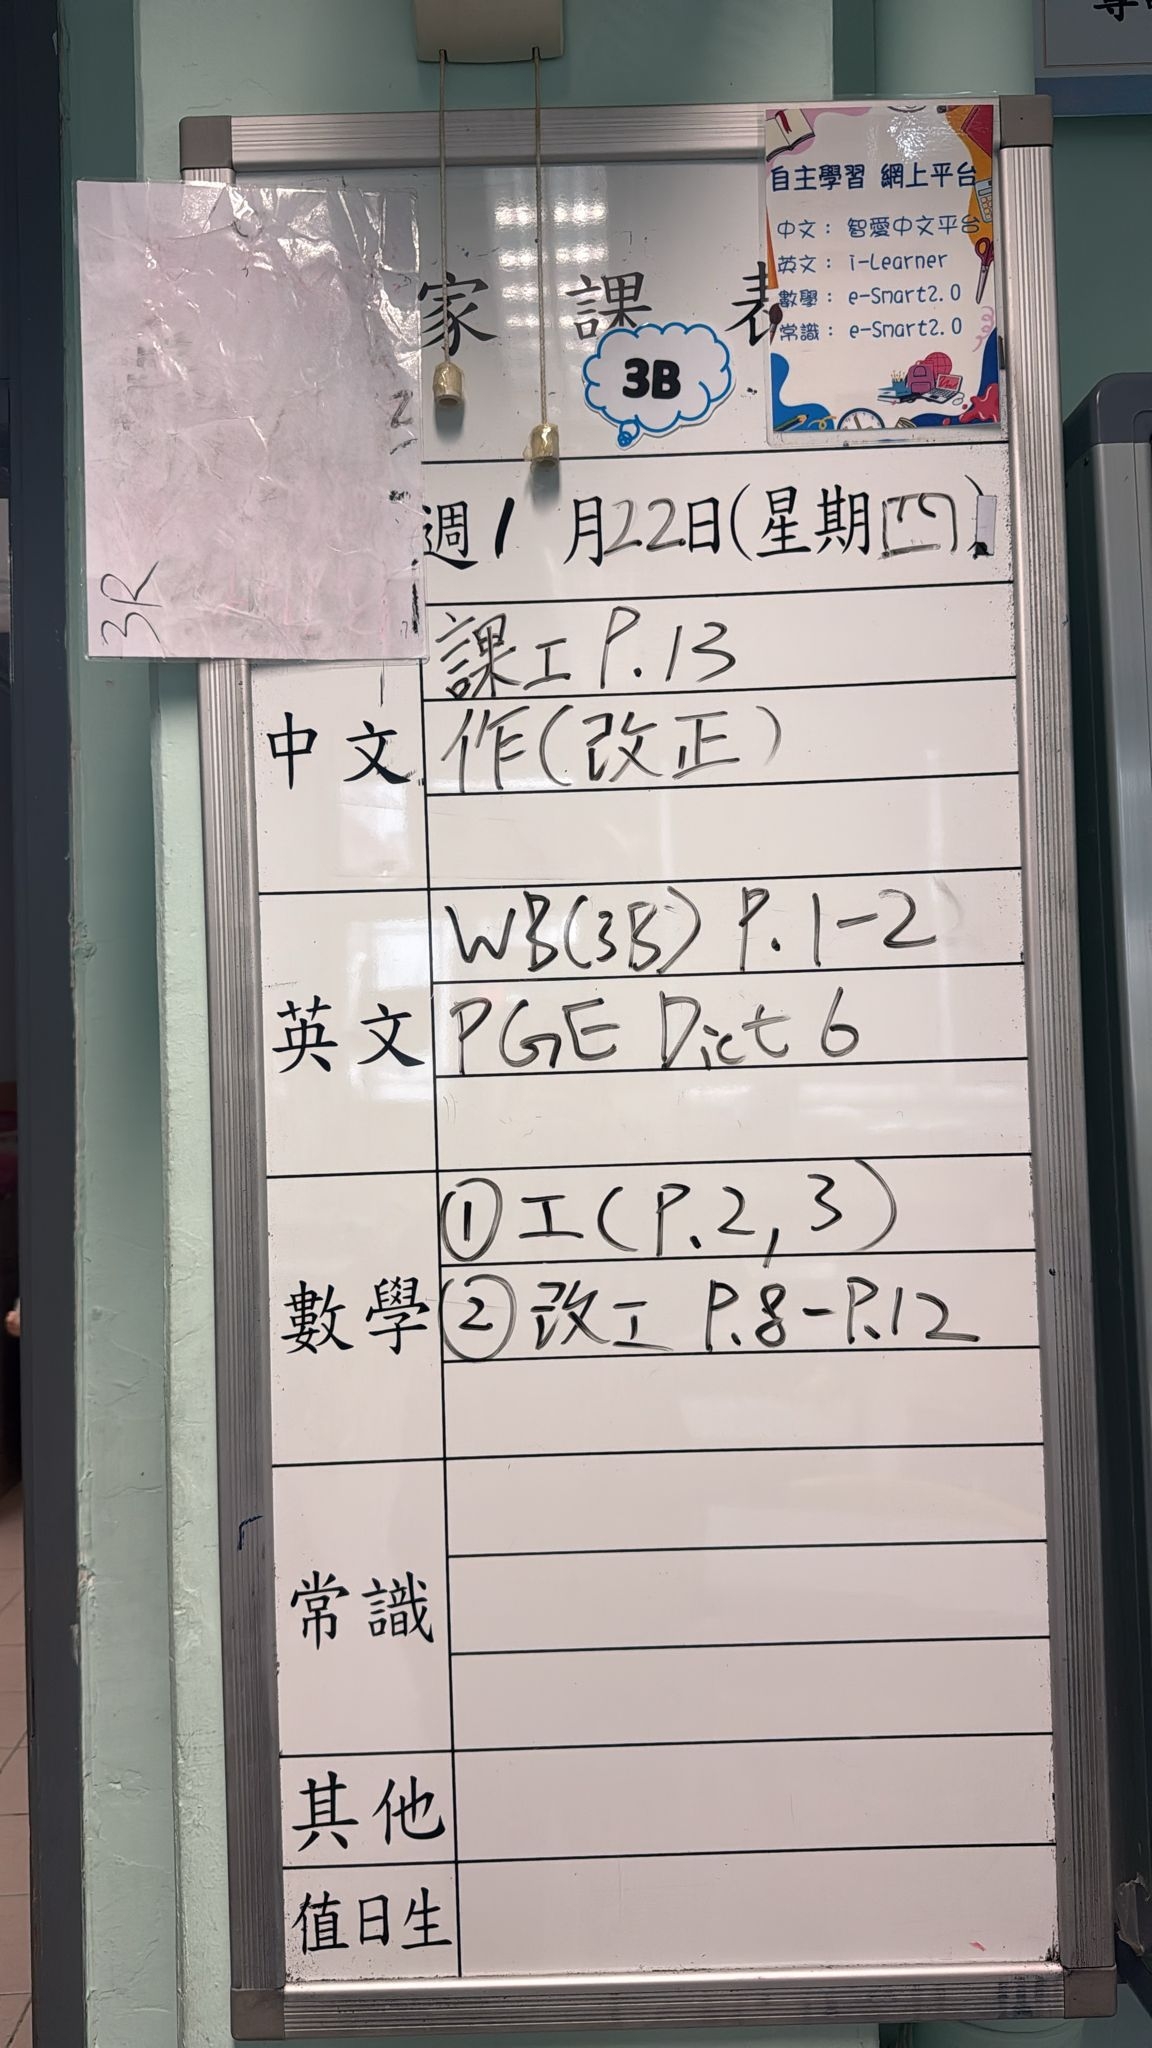 自主學習 網上平台
中文：智愛中文平台
英文：i-Learner
數學：e-Smart2.0
常識：e-Smart2.0
家課表
3B
週1月22日(星期四)
3R
中文
課工 P.13
作(改正)
英文
WB(3B) P.1-2
PGE Dict 6
數學
①工(P.2,3)
②改工 P.8-P.12
常識
其他
值日生